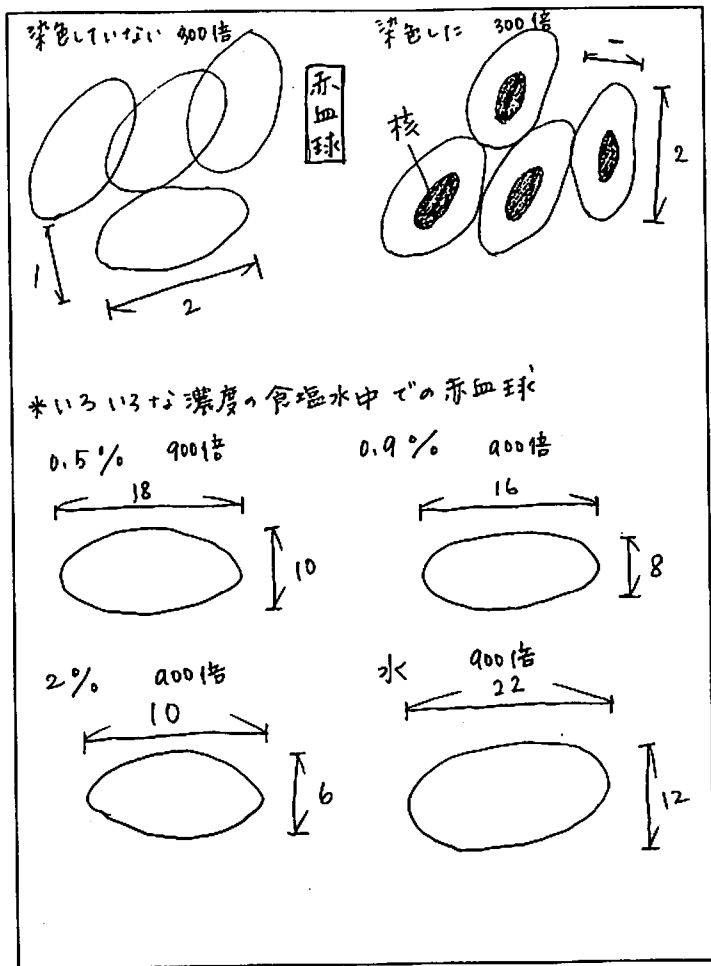 染色していない 300倍
赤血球
1
2
染色した 300倍
核
1
2
*いろいろな濃度の食塩水中での赤血球
0.5% 900倍
18
10
0.9% 900倍
16
8
2% 900倍
10
6
水 900倍
22
12